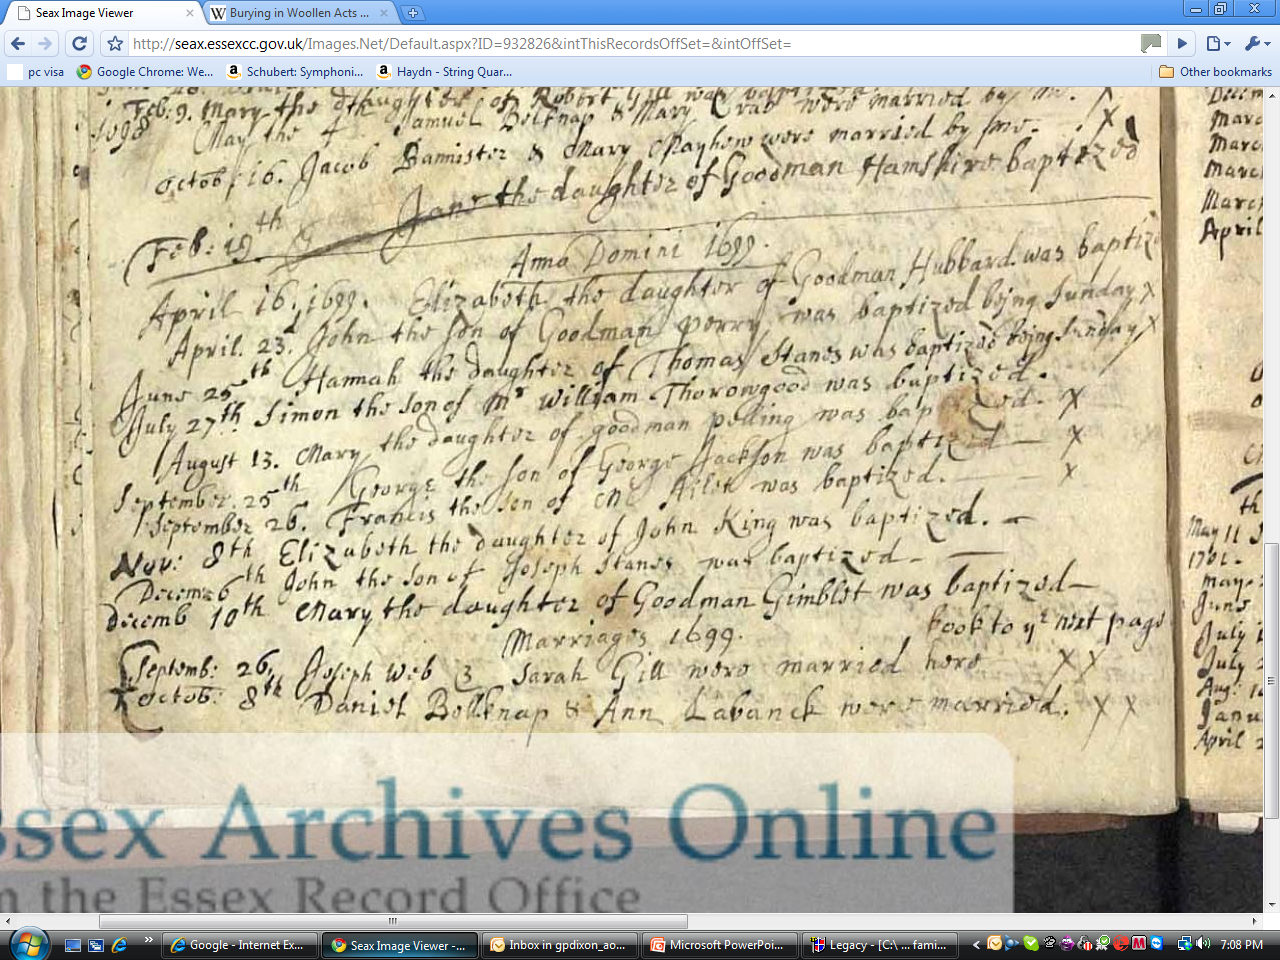 Seax Image Viewer
Burying in Woollen Acts ...
http://seax.essexcc.gov.uk/Images.Net/Default.aspx?ID=932826&intThisRecordsOffSet=&intOffSet=
pc visa
Google Chrome: We...
Schubert: Symphoni...
Haydn - String Quar...
Other bookmarks
Feb: 9. Mary the daughter of Robert Gill was baptized
1698 May the 4 Samuel Belknap & Mary Crab were married by me. X
Octob: 16. Jacob Bannister & Mary Mayhew were married by me.
Feb: 19th Jane the daughter of Goodman Hamshire baptized
Anna Domini 1699.
April 16, 1699. Elizabeth the daughter of Goodman Hubbard was baptize
April. 23. John the son of Goodman perry was baptized being Sunday X
June 25th Hannah the daughter of Thomas Stanes was baptized being Sunday X
July 27th Simon the son of Mr William Thorowgood was baptized.
August 13. Mary the daughter of goodman pelling was baptized. X
September 25th George the son of George Jackson was baptized X
September 26. Francis the son of was baptized. X
Nov: 8th Elizabeth the daughter of John King was baptized.
Decem: 6th John the son of Joseph Stanes was baptized
decemb 10th Mary the daughter of Goodman Gimblet was baptized
Marriages 1699. look to ye next page
Septemb: 26, Joseph Web & Sarah Gill were married here XX
Octob: 8th Daniel Belknap & Ann Lavanck were married. X X
Decem
Marc
Marc
Marc
Marc
April
th
May 11
1701.
may
June
July
July 2
Aug:
Janu
April 2
ssex Archives Online
m the Essex Record Office
Google - Internet Ex...
Seax Image Viewer -...
Inbox in gpdixon_ao...
Microsoft PowerPoi...
Legacy - [C:\ ... fami...
7:08 PM